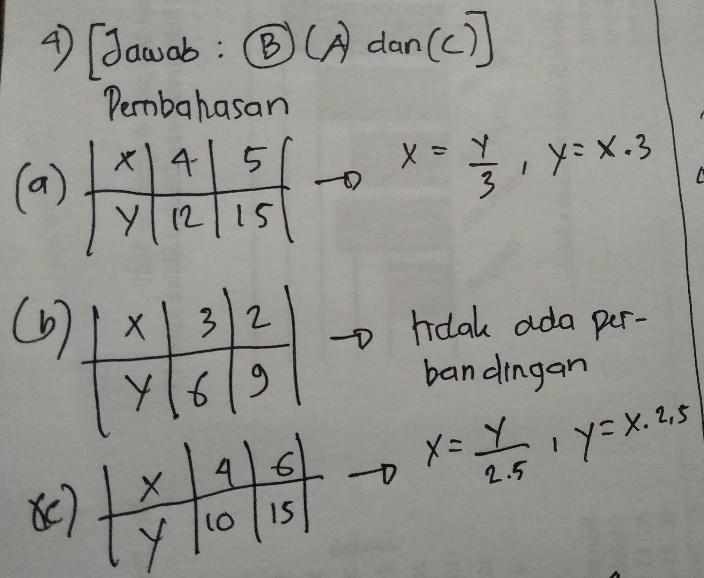 4) [Jawab : (B) (A) dan (C)]
Pembahasan
(a) | x | 4 | 5 | → x = y/3 , y = x . 3
| y | 12 | 15 |
(b) | x | 3 | 2 | → tidak ada per-
| y | 6 | 9 | bandingan
(c) | x | 4 | 6 | → x = y/2.5 , y = x . 2,5
| y | 10 | 15 |